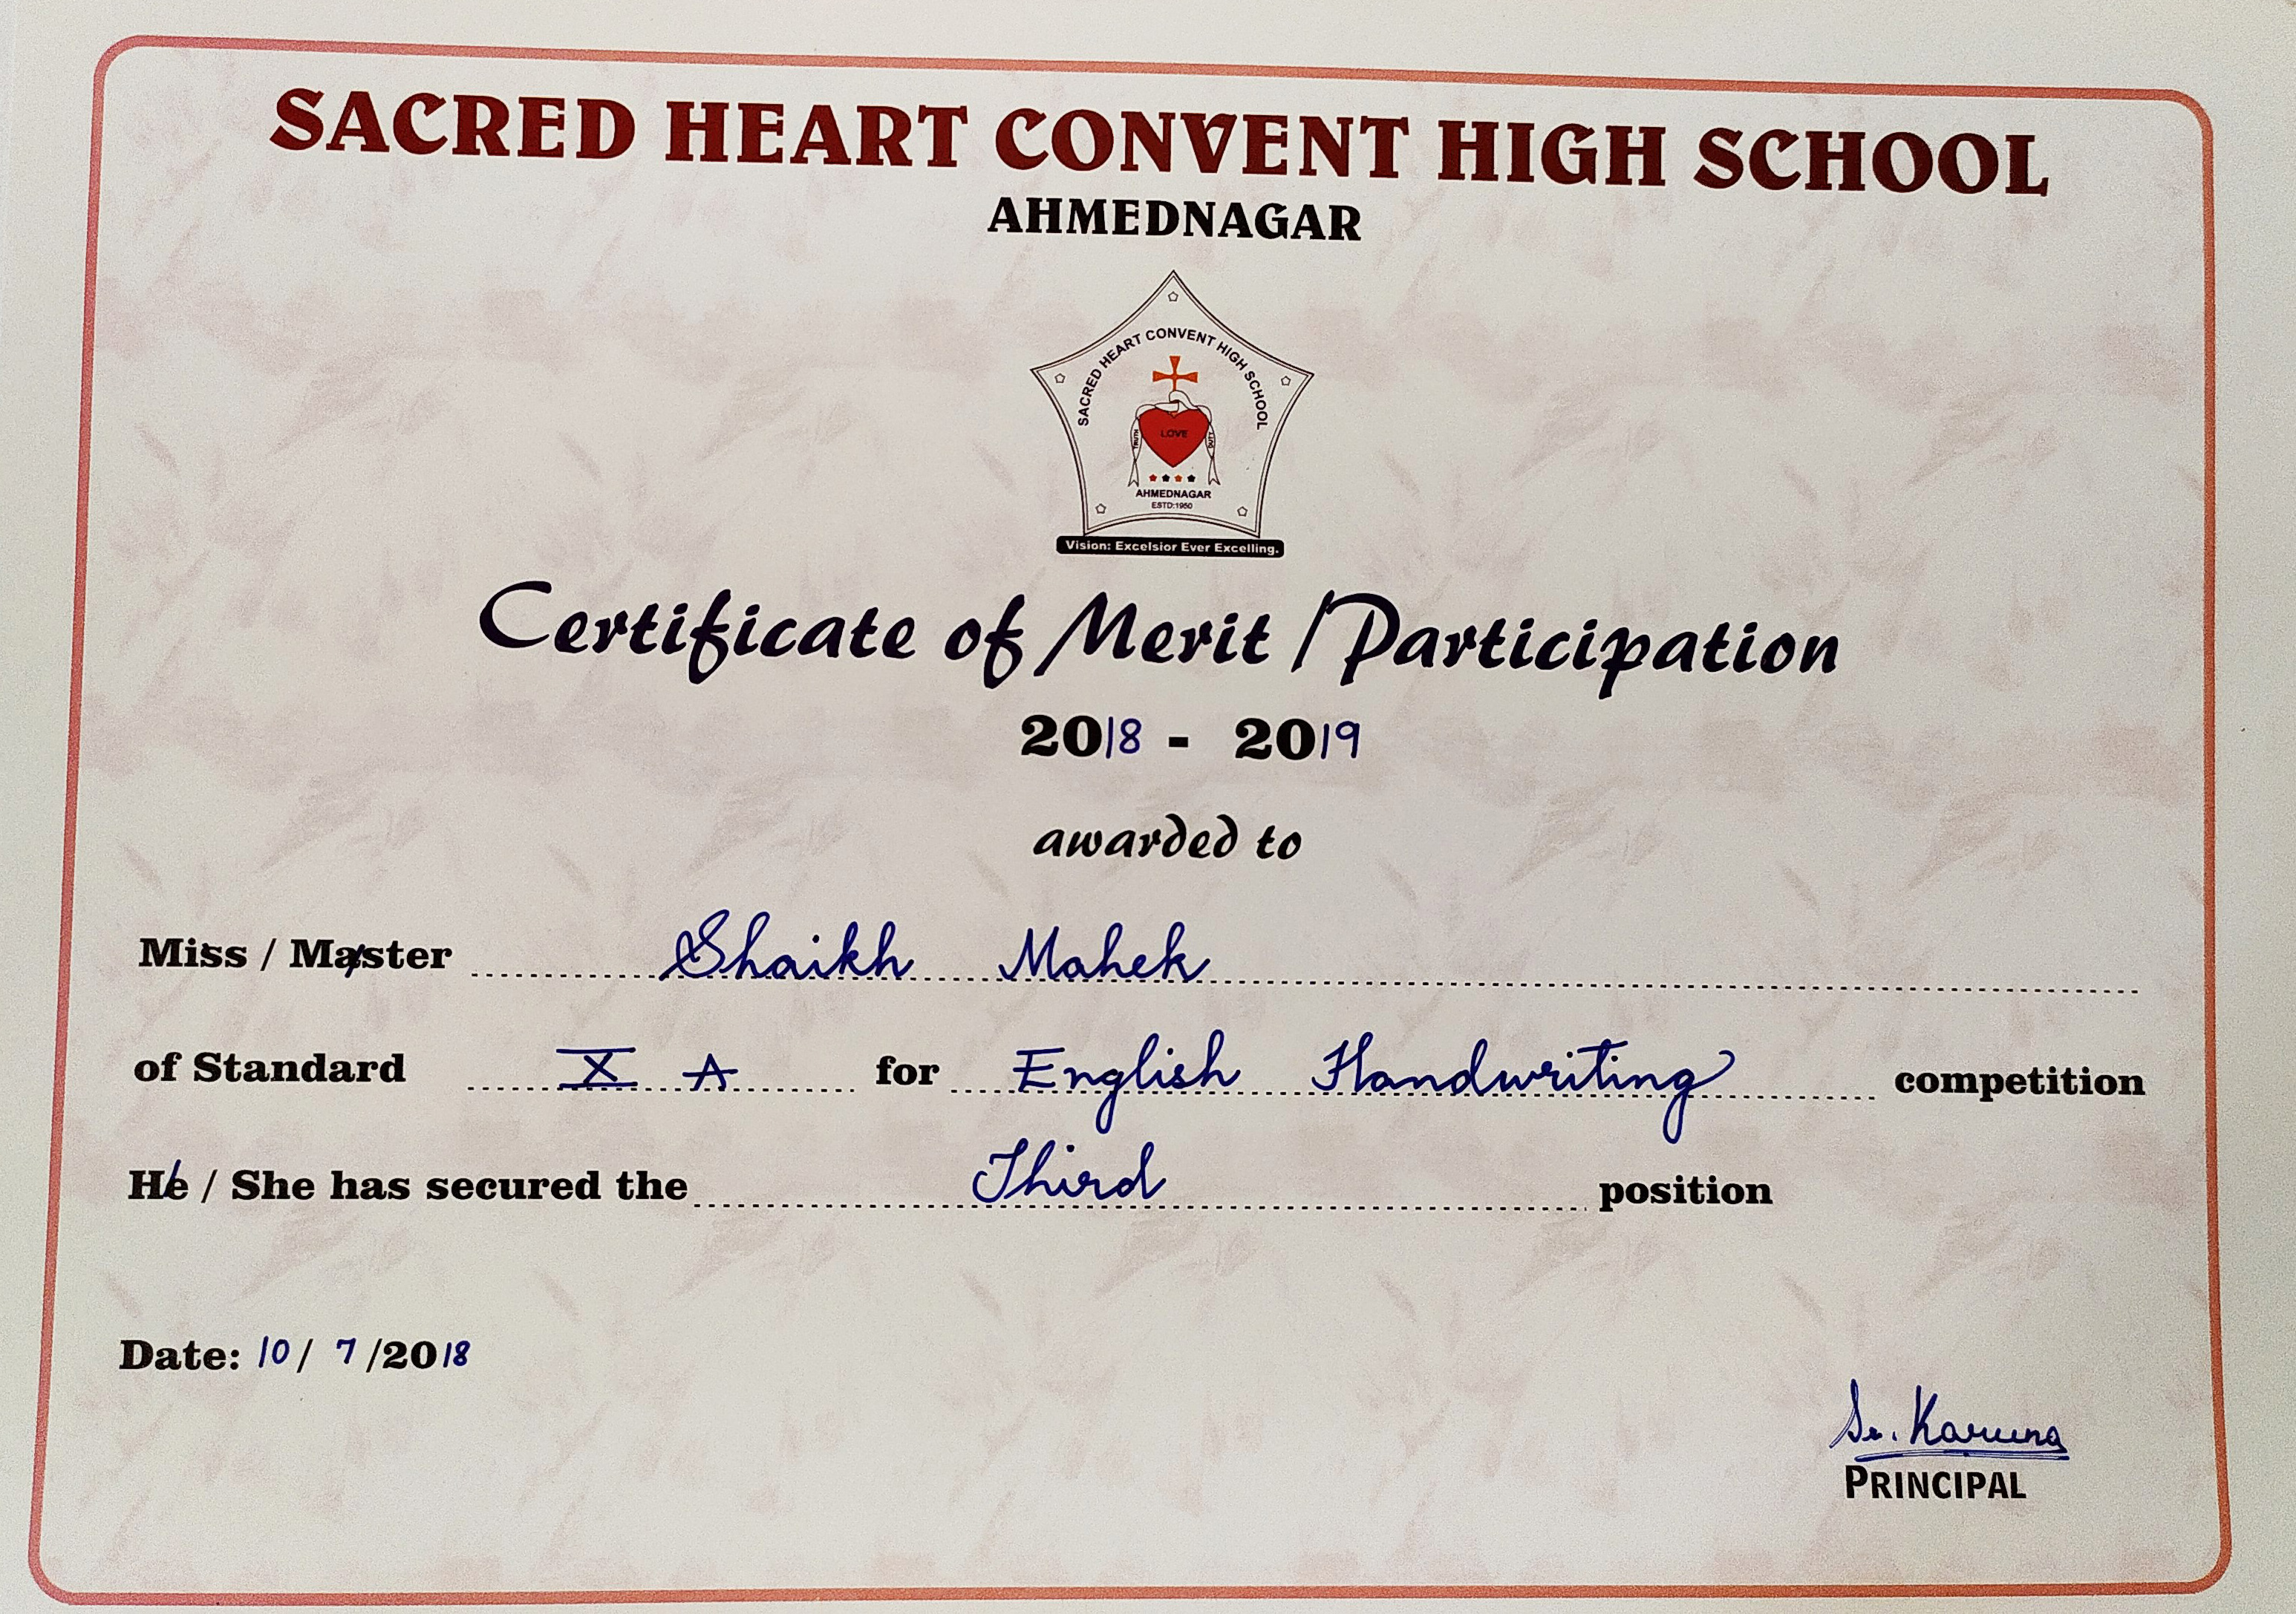 SACRED HEART CONVENT HIGH SCHOOL
AHMEDNAGAR
SACRED HEART CONVENT HIGH SCHOOL
LOVE
TRUTH
DUTY
AHMEDNAGAR
ESTD:1950
Vision: Excelsior Ever Excelling.
Certificate of Merit / Participation
2018 - 2019
awarded to
Miss / Master Shaikh Mahek
of Standard X A for English Handwriting competition
He / She has secured the Third position
Date: 10 / 7 /2018
Sr. Karuna
PRINCIPAL